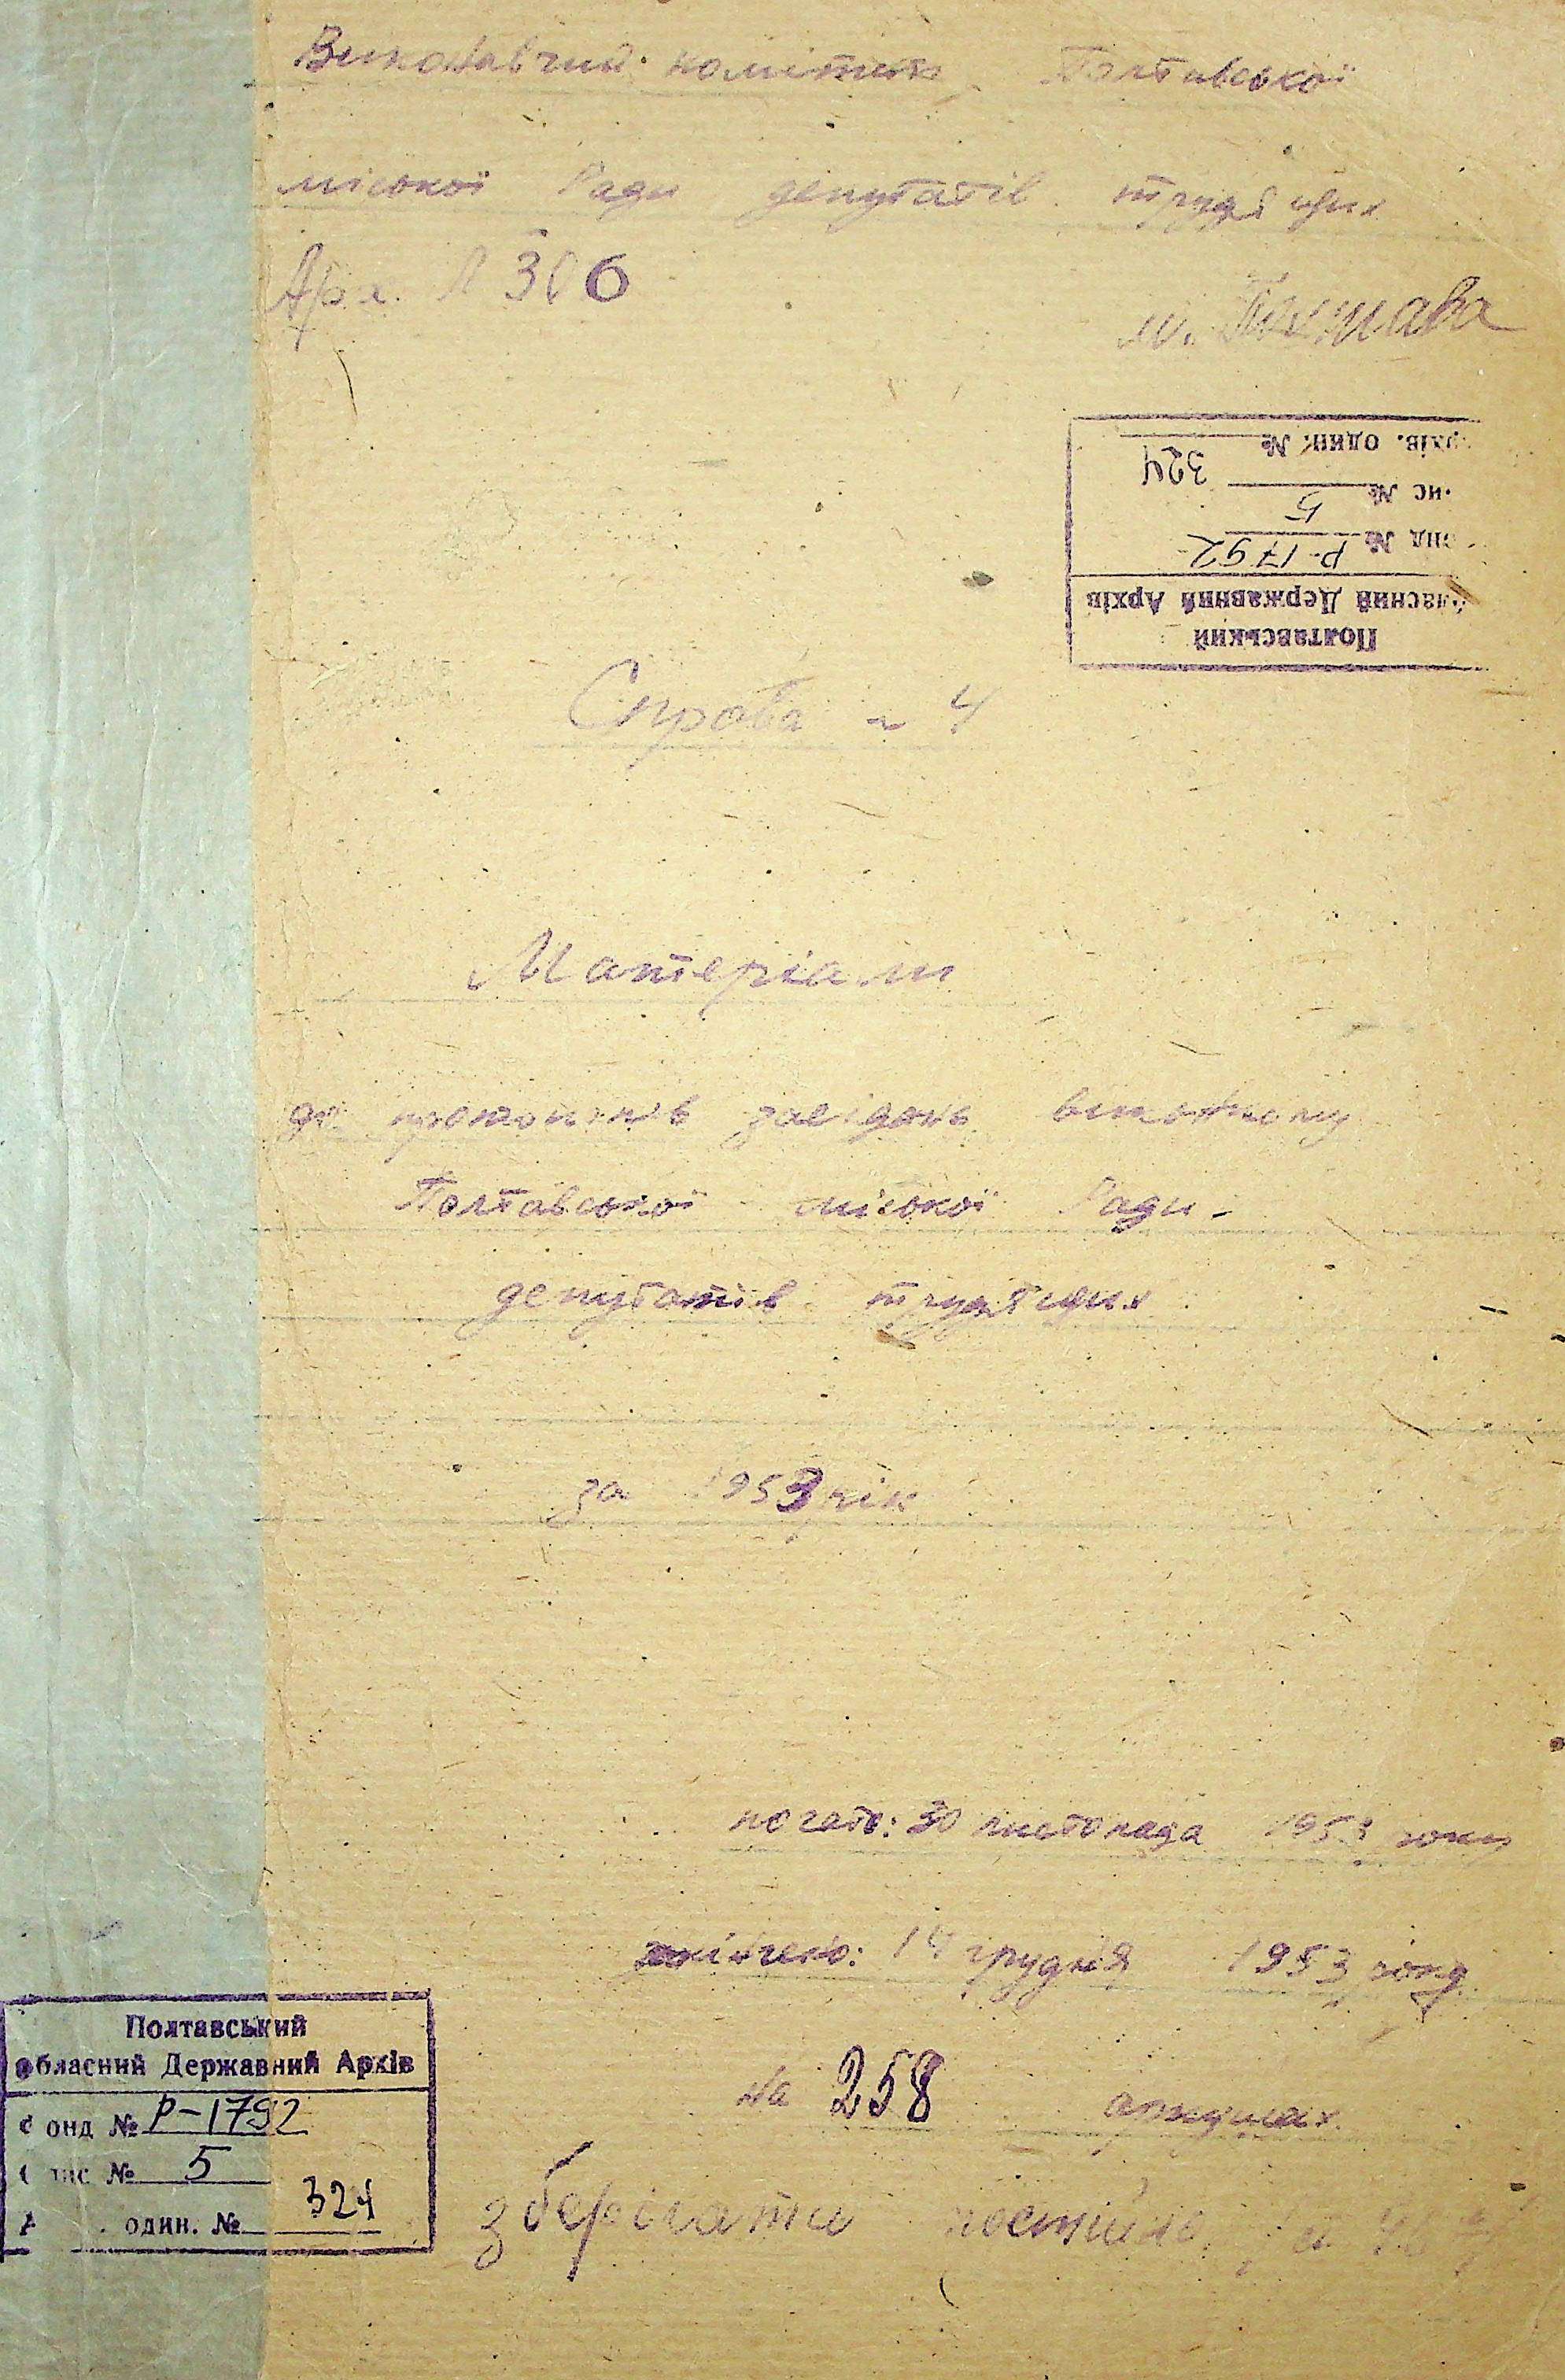 Виконавчий комітет Полтавської
міської Ради депутатів трудящих
Арх. № 306
м. Полтава
Полтавський
ласний Державний Архів
онд № Р-1792
ис № 5
рхів. один. № 324
Справа № 4
Матеріали
до протоколів засідань виконкому
Полтавської міської Ради
депутатів трудящих
за 1953 рік
почато: 30 листопада 1953 року
закінчено: 14 грудня 1953 року
на 258 аркушах
зберігати постійно
Полтавський
обласний Державний Архів
Фонд № Р-1792
пис № 5
один. № 324